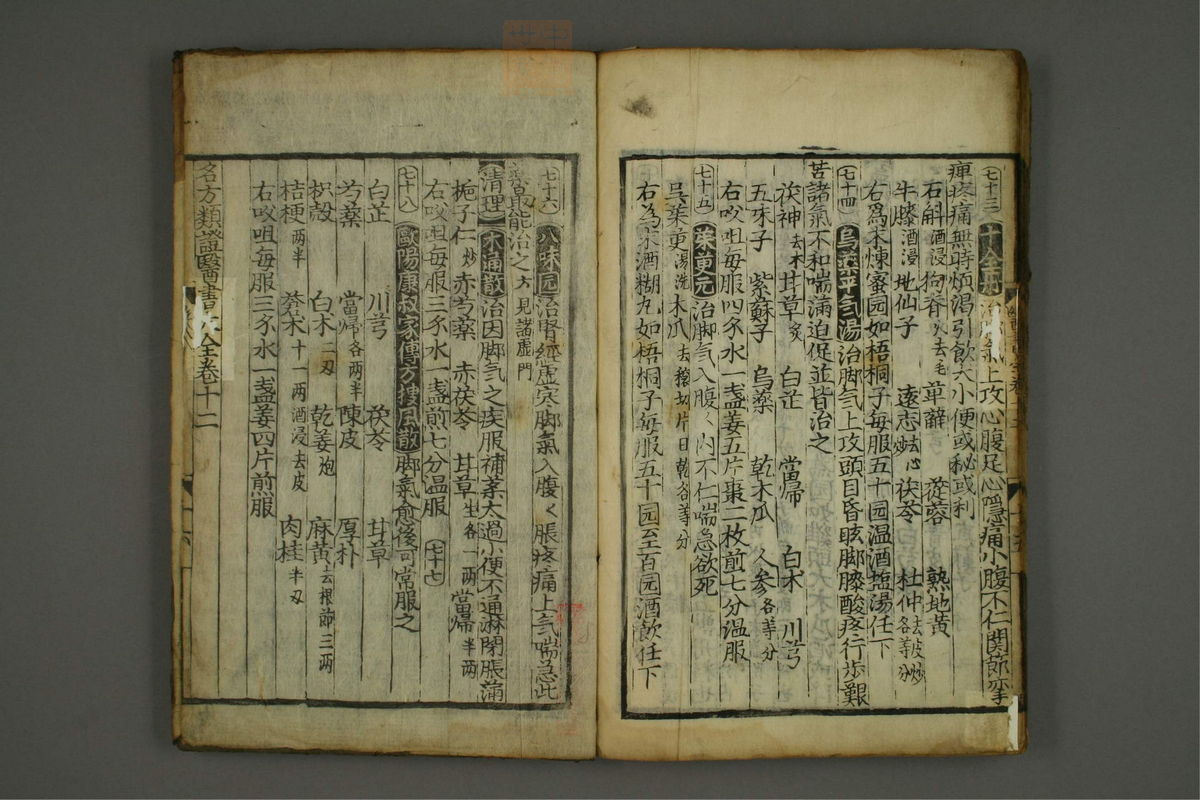 七十三 十全丹 治脚氣上攻心腹足心隱痛小腹不仁関節挛
痺疼痛無時煩渴引飲大小便或秘或利
石斛酒浸 狗脊火去毛 萆薢 蓯蓉 熟地黄
牛膝酒浸 地仙子 遠志炒去心 茯苓 杜仲去皮炒各等分
右為末煉蜜园如梧桐子每服五十园温酒塩湯任下
七十四 烏薬平气湯 治脚气上攻頭目昏眩脚膝酸疼行步艱
苦諸氣不和喘滿迫促並皆治之
茯神去木 甘草炙 白芷 當帰 白术 川芎
五味子 紫蘇子 烏薬 乾木瓜 人参各等分
右㕮咀每服四分水一盞姜五片棗二枚煎七分温服
七十五 茱萸元 治脚气入腹〻內不仁喘急欲死
吳茱萸湯洗 木爪去穰切片日乾各等分
右為末酒糊丸如梧桐子每服五十园至百园酒飲任下
七十六 八味园 治腎經虛寒脚氣入腹〻脹疼痛上气喘急此
最能治之方見諸虛門
清理 木通散 治因脚气之疾服補薬太過小便不通淋閉脹滿
梔子仁炒 赤芍薬 赤茯苓 甘草生各一両 當帰半両
右㕮咀每服三分水一盞煎七分温服 七十七
七十八 歐陽康叔家傳方搜風散 脚氣愈後可常服之
白芷 川芎 茯苓 甘草
芍薬 當帰各两半 陳皮 厚朴
枳殻 白术二刄 乾姜炮 麻黄去根節三两
桔梗两半 蒼术十一两酒浸去皮 肉桂半刄
右㕮咀每服三分水一盞姜四片煎服
名方類證醫書大全卷十二